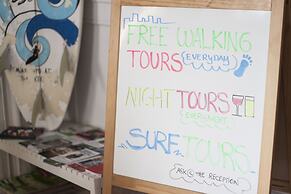 FREE WALKING
TOURS (EVERYDAY)
NIGHT TOURS
(EVERYNIGHT)
SURF TOURS
ASK @ THE RECEPTION